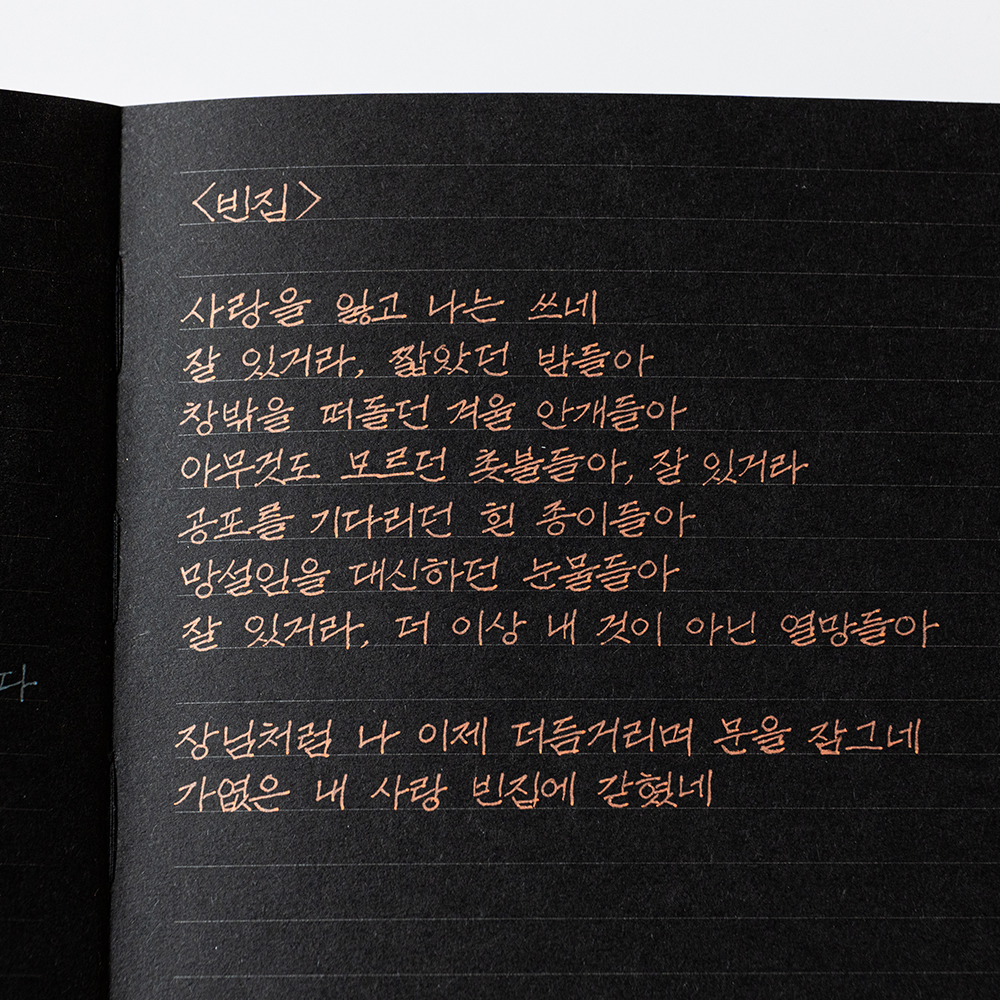 <빈집>
사랑을 잃고 나는 쓰네
잘 있거라, 짧았던 밤들아
창밖을 떠돌던 겨울 안개들아
아무것도 모르던 촛불들아, 잘 있거라
공포를 기다리던 흰 종이들아
망설임을 대신하던 눈물들아
잘 있거라, 더 이상 내 것이 아닌 열망들아
장님처럼 나 이제 더듬거리며 문을 잠그네
가엾은 내 사랑 빈집에 갇혔네
다